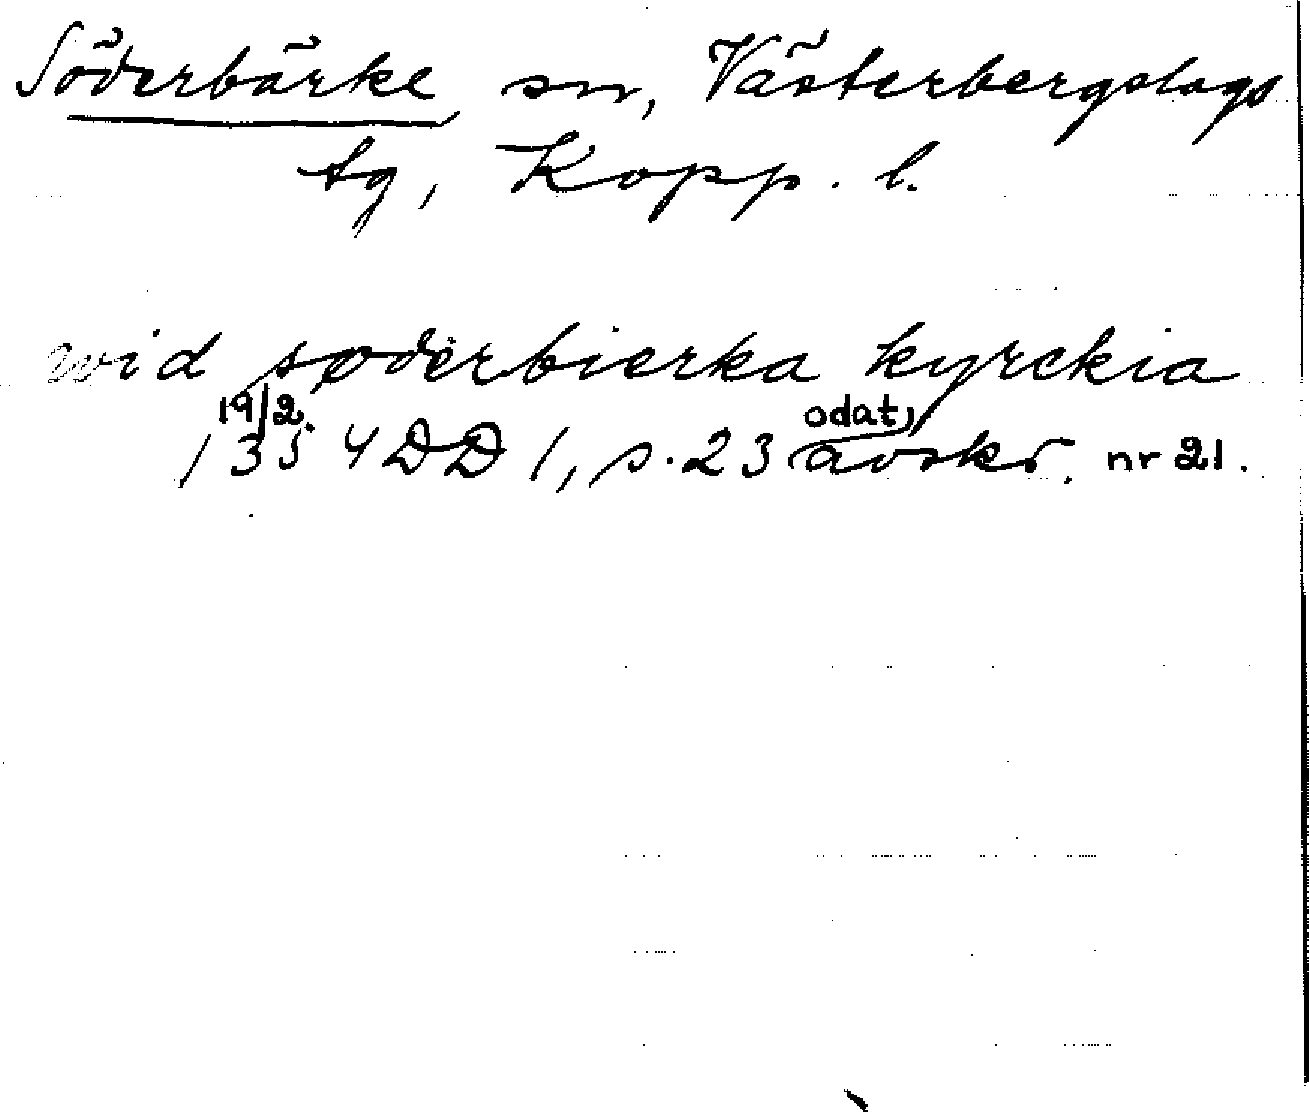 Söderbärke sn, Västerbergslags
tg, Kopp. l.
wid søderbierka kyrckia
19/2 odat,
1354 DD 1, s. 23 avskr. nr 21.